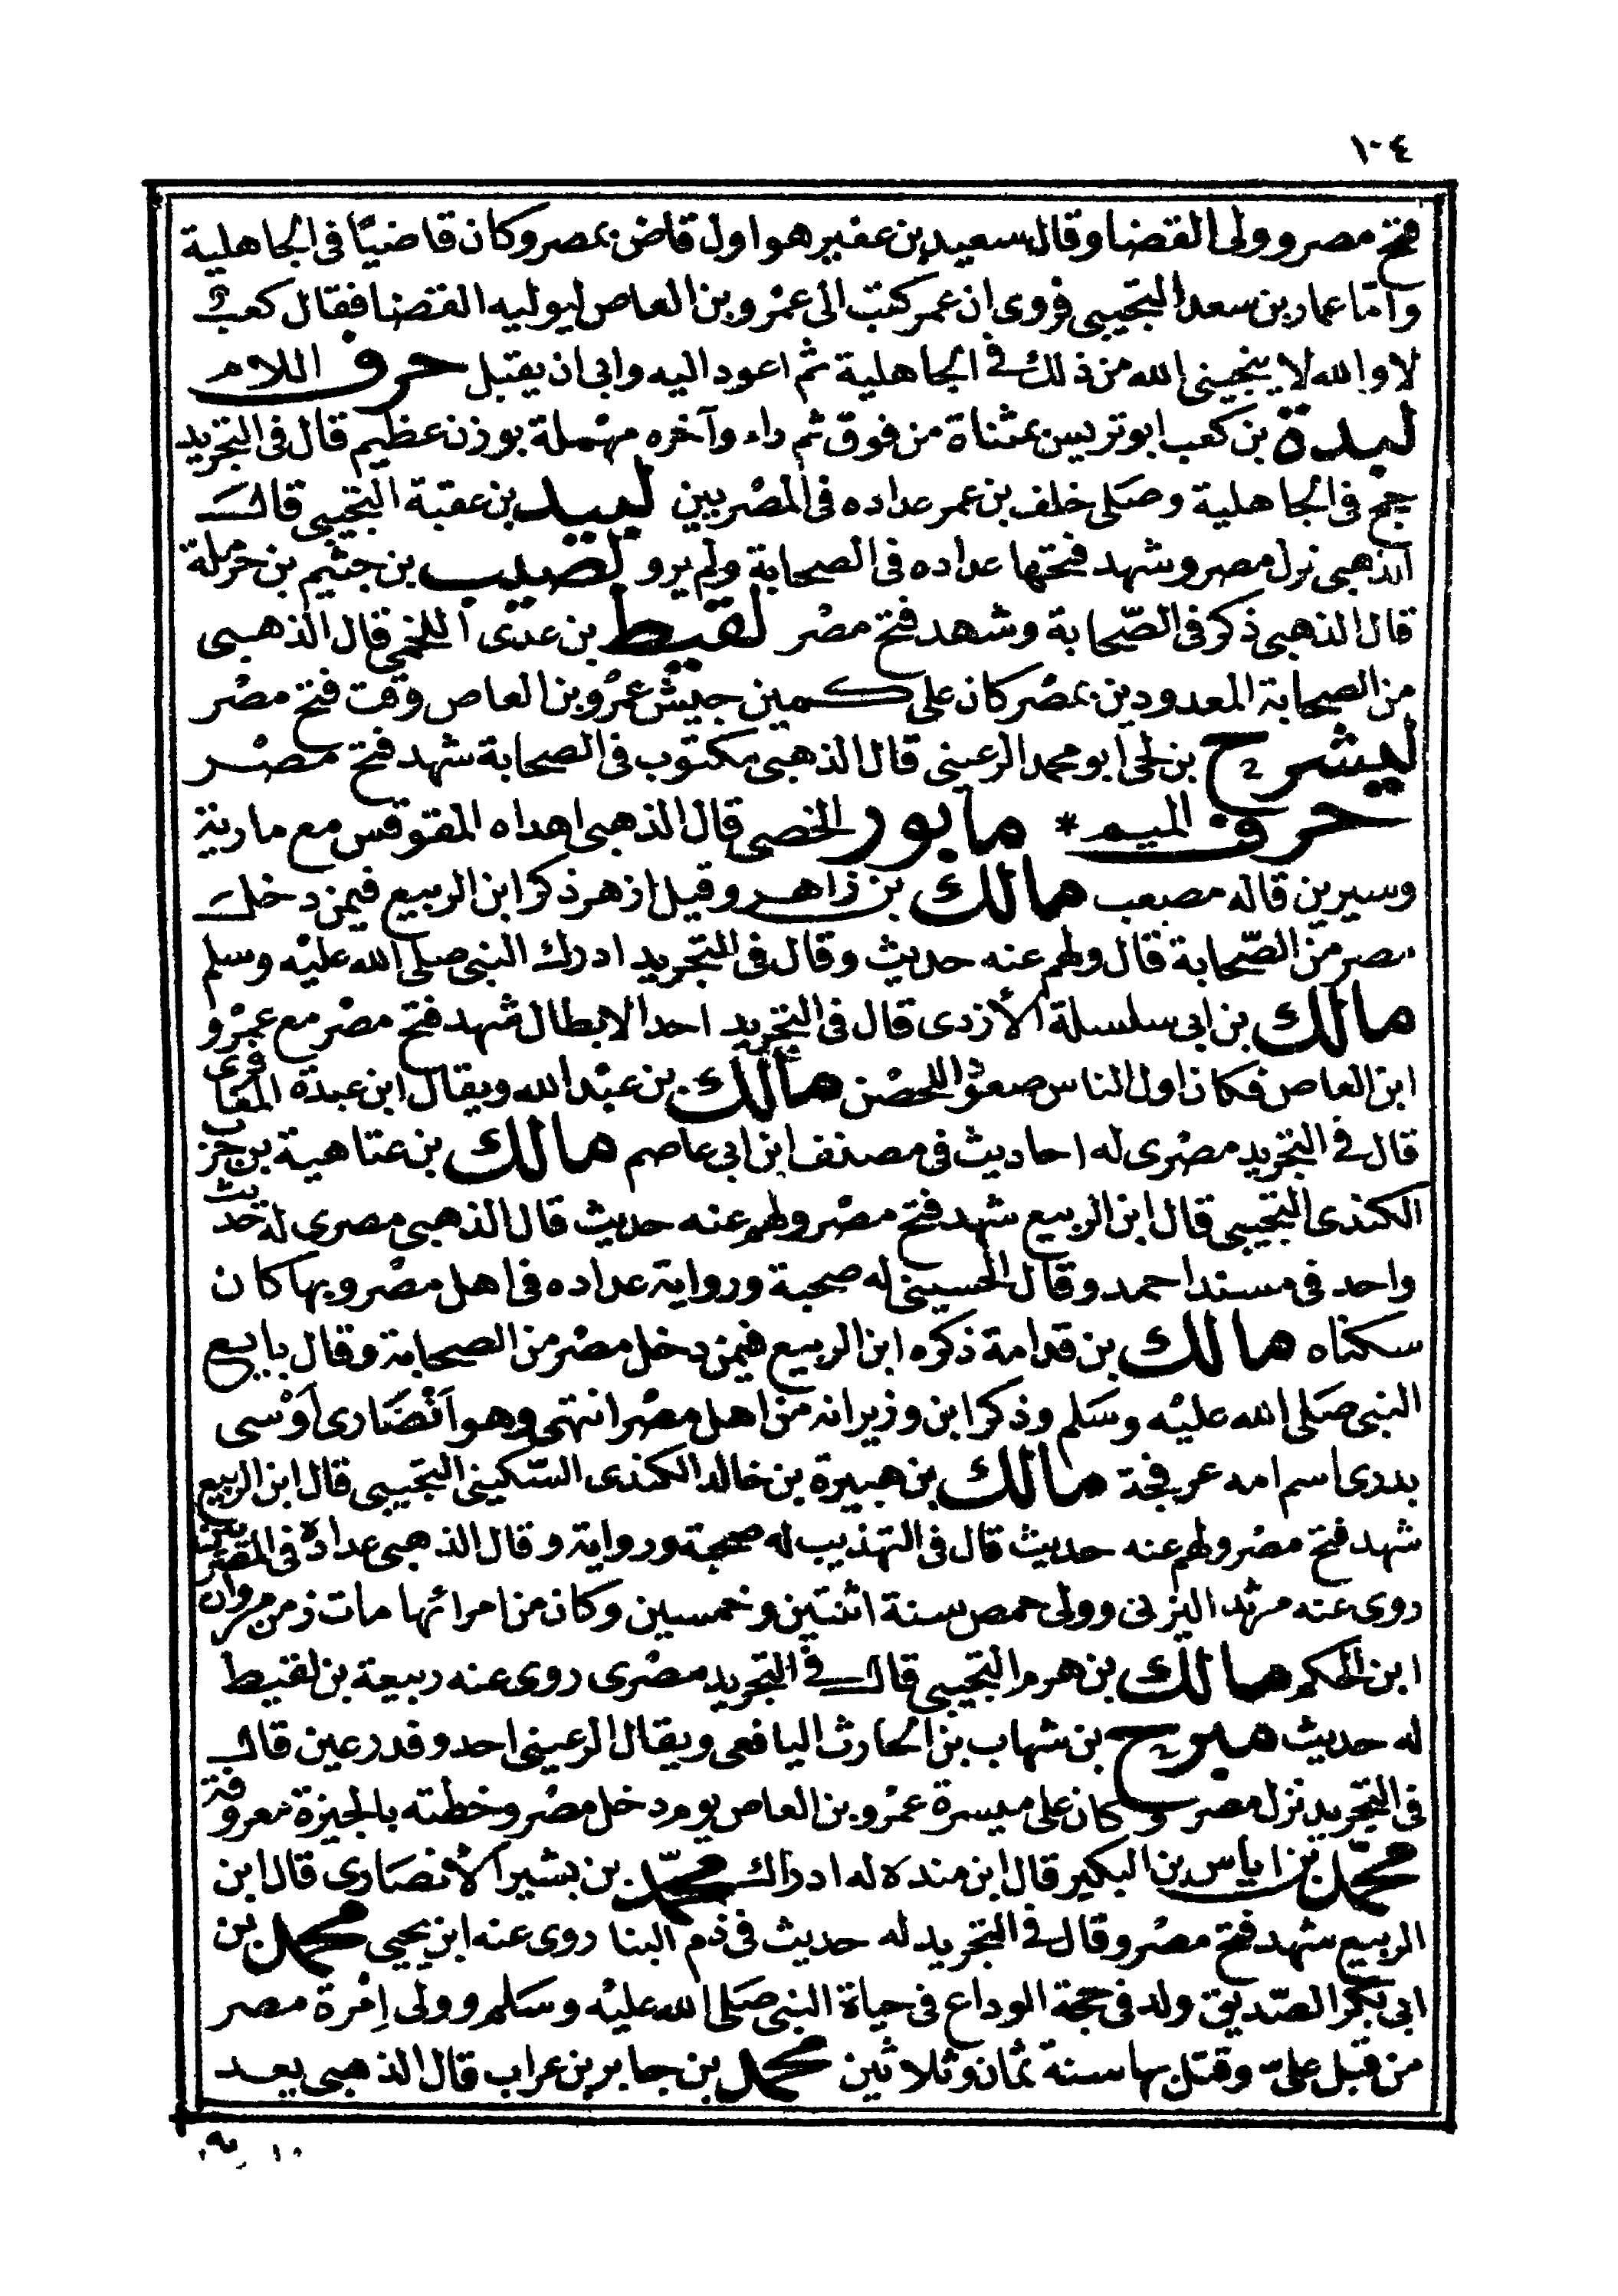 ١٠٤
فتح مصر وولى القضا وقال سعيد بن عفير هو اول قاض بمصر وكان قاضيًا فى الجاهلية
وأمّا عمار بن سعد التجيبى فروى ان عمر كتب الى عمْرو بن العاص ليوليه القضا فقال كعب
لا والله لا ينجينى الله من ذلك فى الجاهلية ثم اعود اليه وابى ان يقبل حرف اللام
لبدة بن كعب ابو تريس بمثناة من فوق ثم راء وآخره مهْملة بوزن عظيم قال فى التجريد
حج فى الجاهلية وصَلى خلف بن عمر عداده فى المصْريين لبيد بن عقبة التجيبى قال
الذهبى نزل مصر وشهد فتحها عداده فى الصحابة ولم يرو لصيب بن جثيم بن حرملة
قال الذهبى ذكر فى الصّحابة وشهد فتح مصْر لقيط بن عدى اللخمى قال الذهبى
من الصحابة المعدودين بمصْر كان على كمين جيش عمرْو بن العاص وقت فتح مصْر
ليشرح بن لحى ابو محمد الرعينى قال الذهبى مكتوب فى الصحابة شهد فتح مصْر
حرف الميم * مابور الخصى قال الذهبى اهداه المقوقس مع مارية
وسيرين قاله مصعب مالك بن زاهر وقيل ازهر ذكر ابن الربيع فيمن دخل
مصر من الصّحابة قال ولهم عنه حديث وقال فى التجريد ادرك النبى صلى الله عليْه وسلم
مالك بن ابى سلسلة الأزدى قال فى التجريد احد الابطال شهد فتح مصْر مع عمرْو
ابن العاص فكان اول الناس صعودًا للحصْن مالك بن عبْد الله ويقال ابن عبدة المعافرى
قال فى التجريد مصْرى له احاديث فى مصنف ابن ابى عاصم مالك بن عتاهية بن حرب
الكندى التجيبى قال ابن الربيع شهد فتح مصْر ولهم عنه حديث قال الذهبى مصرى له حديث
واحد فى مسند احمد وقال الحسينى له صحبة ورواية عداده فى اهل مصْر وبها كان
سكناه مالك بن قدامة ذكره ابن الربيع فيمن دخل مصْر من الصحابة وقال بايع
النبى صَلى الله عليْه وسَلم وذكر ابن وزير انه من اهل مصْر انتهى وهو اَنْصَارى اَوْسى
بدرى اسم امه عرفجة مالك بن هبيرة بن خالد الكندى السّكينى التجيبى قال ابن الربيع
شهد فتح مصْر ولهم عنه حديث قال فى التهذيب له صحبة ورواية وقال الذهبى عداده فى المصْريين
روى عنه مرثد اليزنى وولى حمص سنة اثنتين وخمسين وكان من امرائها مات زمن مروان
ابن الحكم مالك بن هرم التجيبى قال فى التجريد مصْرى روى عنه ربيعة بن لقيط
له حديث مبرح بن شهاب بن الحارث اليافعى ويقال الرعينى احد وفد رعين قال
فى التجريد نزل مصر وكان على ميسرة عمْرو بن العاص يوم دخل مصْر وخطته بالجيزة معروفة
محمّد بن اياس بن البكير قال ابن منده له ادراك محمّد بن بشير الأنصَارى قال ابن
الربيع شهد فتح مصْر وقال فى التجريد له حديث فى ذم البنا روى عنه ابن يحيى محمد بن
ابى بكر الصّديق ولد فى حجة الوداع فى حياة النبى صَلى الله عليْه وسَلم وولى اِمْرة مصر
من قبل علىّ وقتل بها سنة ثمان وثلاثين محمد بن جابر بن عراب قال الذهبى يعد